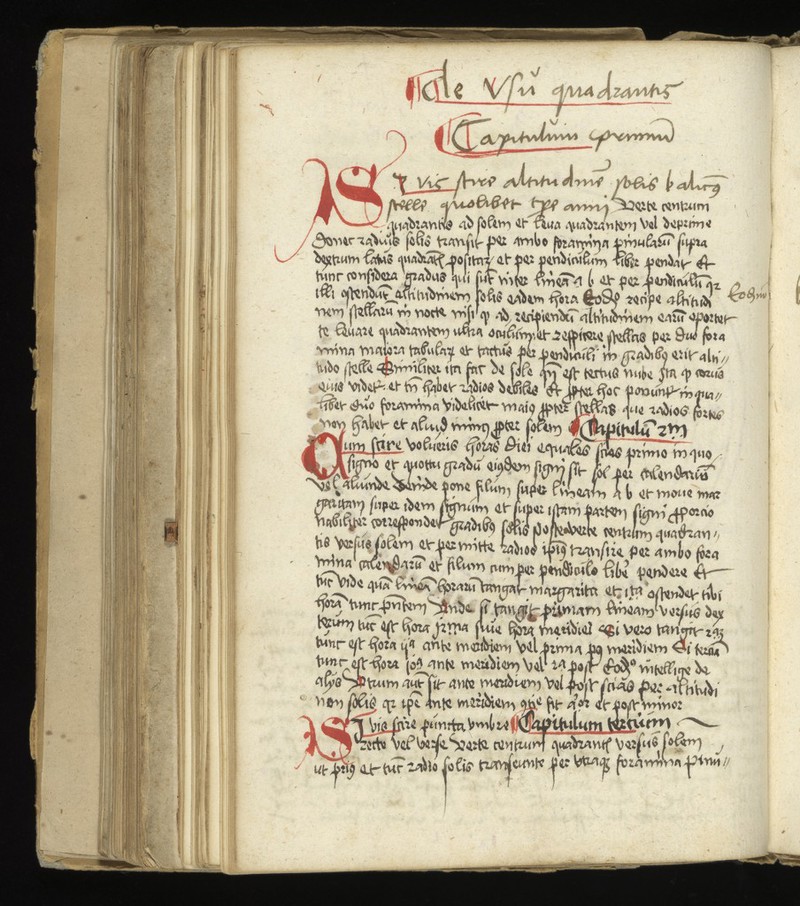 De Vsu quadrantis
Capitulum primum
Si vis scire altitudinē solis ł alicuiꝰ
stelle quolibet tpe anni Verte centrum
quadrantis ad solem et leua quadrantem vel deprime
donec radius solis transit per ambo foramina pinularū supra
dextrum latus quadratꝭ positaꝝ et per pendiculum liber pendat Et
tunc considera gradus qui sūt inter lineam a b et per pendiculū qꝛ
illi ostendūt altitudinem solis eadem hora Eodē recipe altitudi
nem stellarū in nocte nisi ꝙ ad recipiendū altitudinem earū oportet
te leuare quadrantem ultra oculum et respicere stellas per duo fora
mina maiora tabulaꝝ et tactus per pendiculi in gradibꝰ erit alti〃
tudo stelle Similiter ita fac de sole qn̄ est tectus nube ita ꝙ corpus
eius videtꝛ et tn̄ habet radios debiles Et ꝓpter hoc ponunt in qua〃
libet duo foramina videlicet maiꝰ ꝓpter stellas que radios fortes
non habet et aliud minꝰ ꝓpter solem Capitulū 2m
Cum scire volueris horas diei equales scias primo in quo
signo et quotu gradū eiusdem signi sit sol per calendariū
vel aliunde deinde pone filum super lineam a b et moue mar
garitam super idem signum et super istam partem signi ꝓporcio
nabiliter correspondet gradibꝰ solis postea verte centrum quadran〃
tis versus solem et permitte radios ipsiꝰ transire per ambo fora
mina calendarū et filum cum per pendiculo libeꝛ pendere Et
tūc vide quā lineā horarū tangat margarita et ita ostendet tibi
horā tunc pn̄tem Vnde si tangit primam lineam versus dex
terum tūc est hora siue hora meridiei Si vero tangit 2aꝫ
tunc est hora 11a ante meridiem vel prima pꝰ meridiem Si terciā
tunc est hora 10a ante meridiem vel 2a post Eodē intellige de
alijs Vtrum aūt sit ante meridiem vel post scias per altitudi
nem solis qꝛ ipē ante meridiem fit et post minor
Si vis scire puncta vmbre Capitulum tercium
recte vel verse Verte centrum quadrantꝭ versus solem
ut priꝰ et tūc radio solis transeunte per vtraqꝫ foramina pinu〃